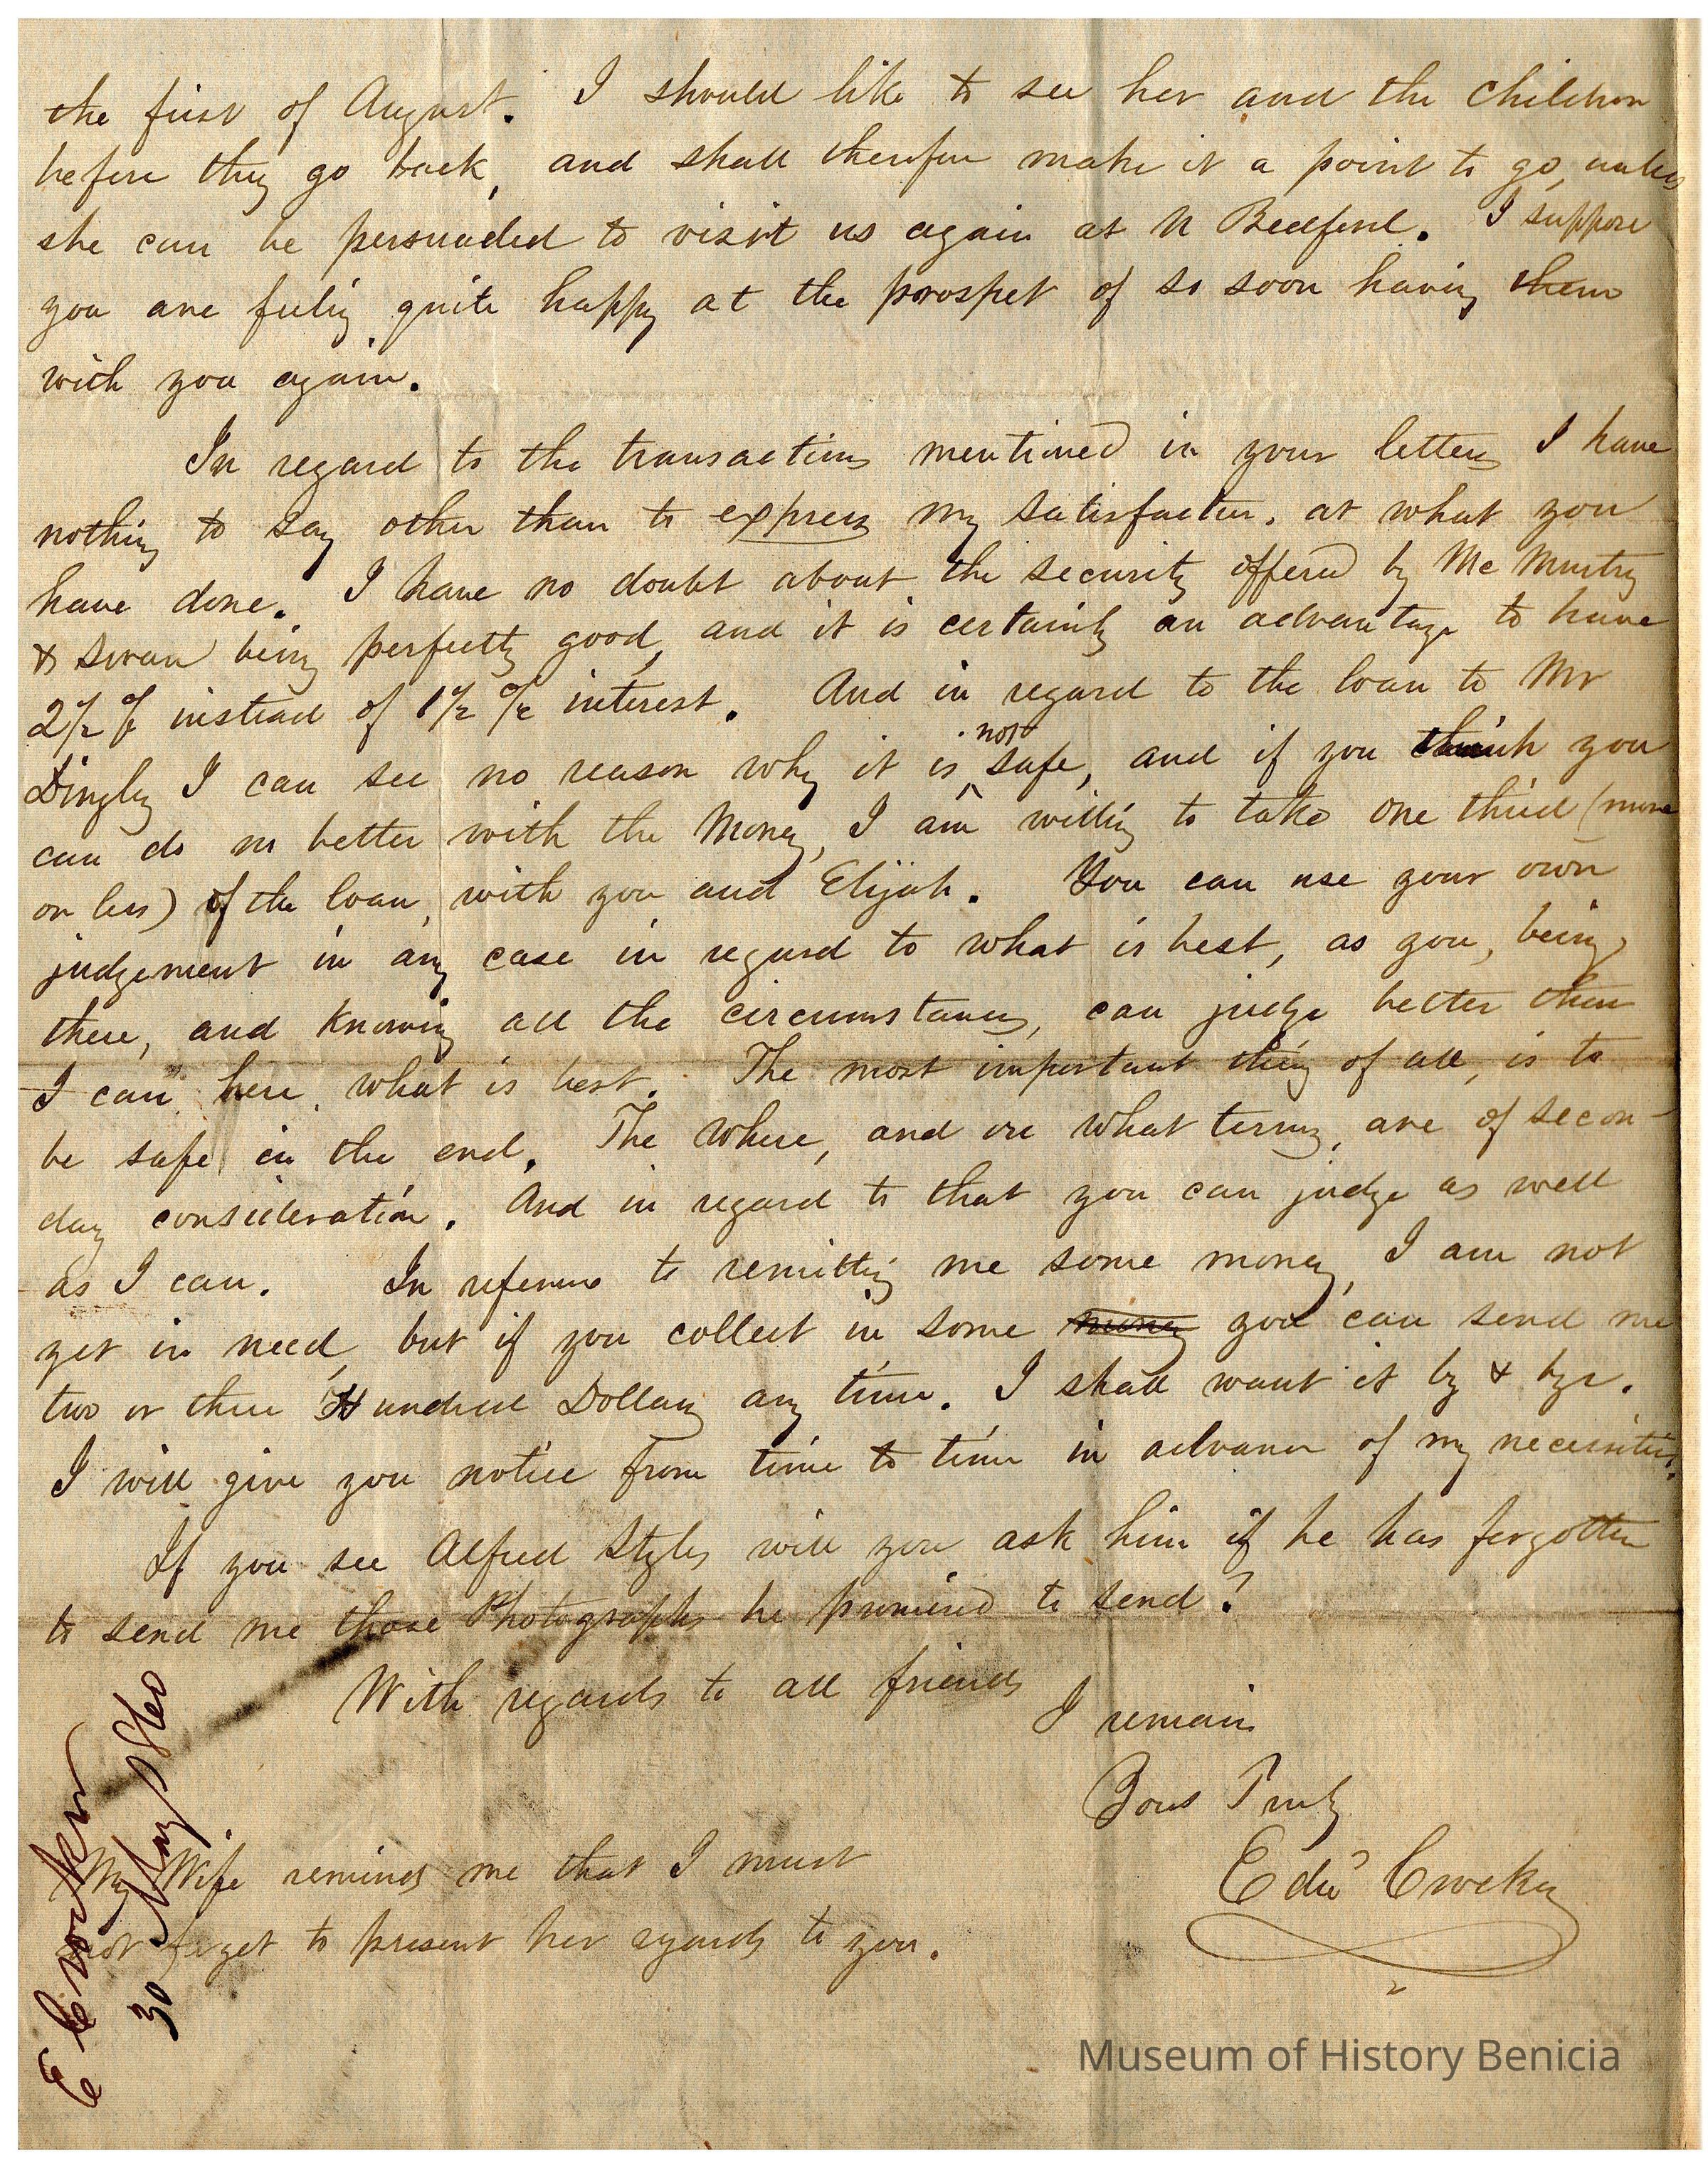 the first of August. I should like to see her and the children
before they go back, and shall therefore make it a point to go, unless
she can be persuaded to visit us again at N Bedford. I suppose
you are feeling quite happy at the prospect of so soon having them
with you again.
In regard to the transactions mentioned in your letters I have
nothing to say other than to express my satisfaction, at what you
have done. I have no doubt about the security offered by McMurtry
& Swan being perfectly good, and it is certainly an advantage to have
2½ % instead of 1½ % interest. And in regard to the loan to Mr
Dingley I can see no reason why it is not safe, and if you think you
can do no better with the Money, I am willing to take one third (more
or less) of the loan, with you and Elijah. You can use your own
judgement in any case in regard to what is best, as you, being
there, and knowing all the circumstances, can judge better than
I can here, what is best. The most important thing of all, is to
be safe in the end. The where, and on what terms, are of secon-
day consideration. And in regard to that you can judge as well
as I can. In reference to remitting me some money, I am not
yet in need, but if you collect in some money you can send me
two or three Hundred Dollars any time. I shall want it by & bye.
I will give you notice from time to time in advance of my necessities.
If you see Alfred Styles will you ask him if he has forgotten
to send me those Photographs he promised to send?
With regards to all friends
I remain
Yours Truly
Edwd Crocker
My Wife reminds me that I must
not forget to present her regards to you.
E Crocker
30 May 1860
Museum of History Benicia